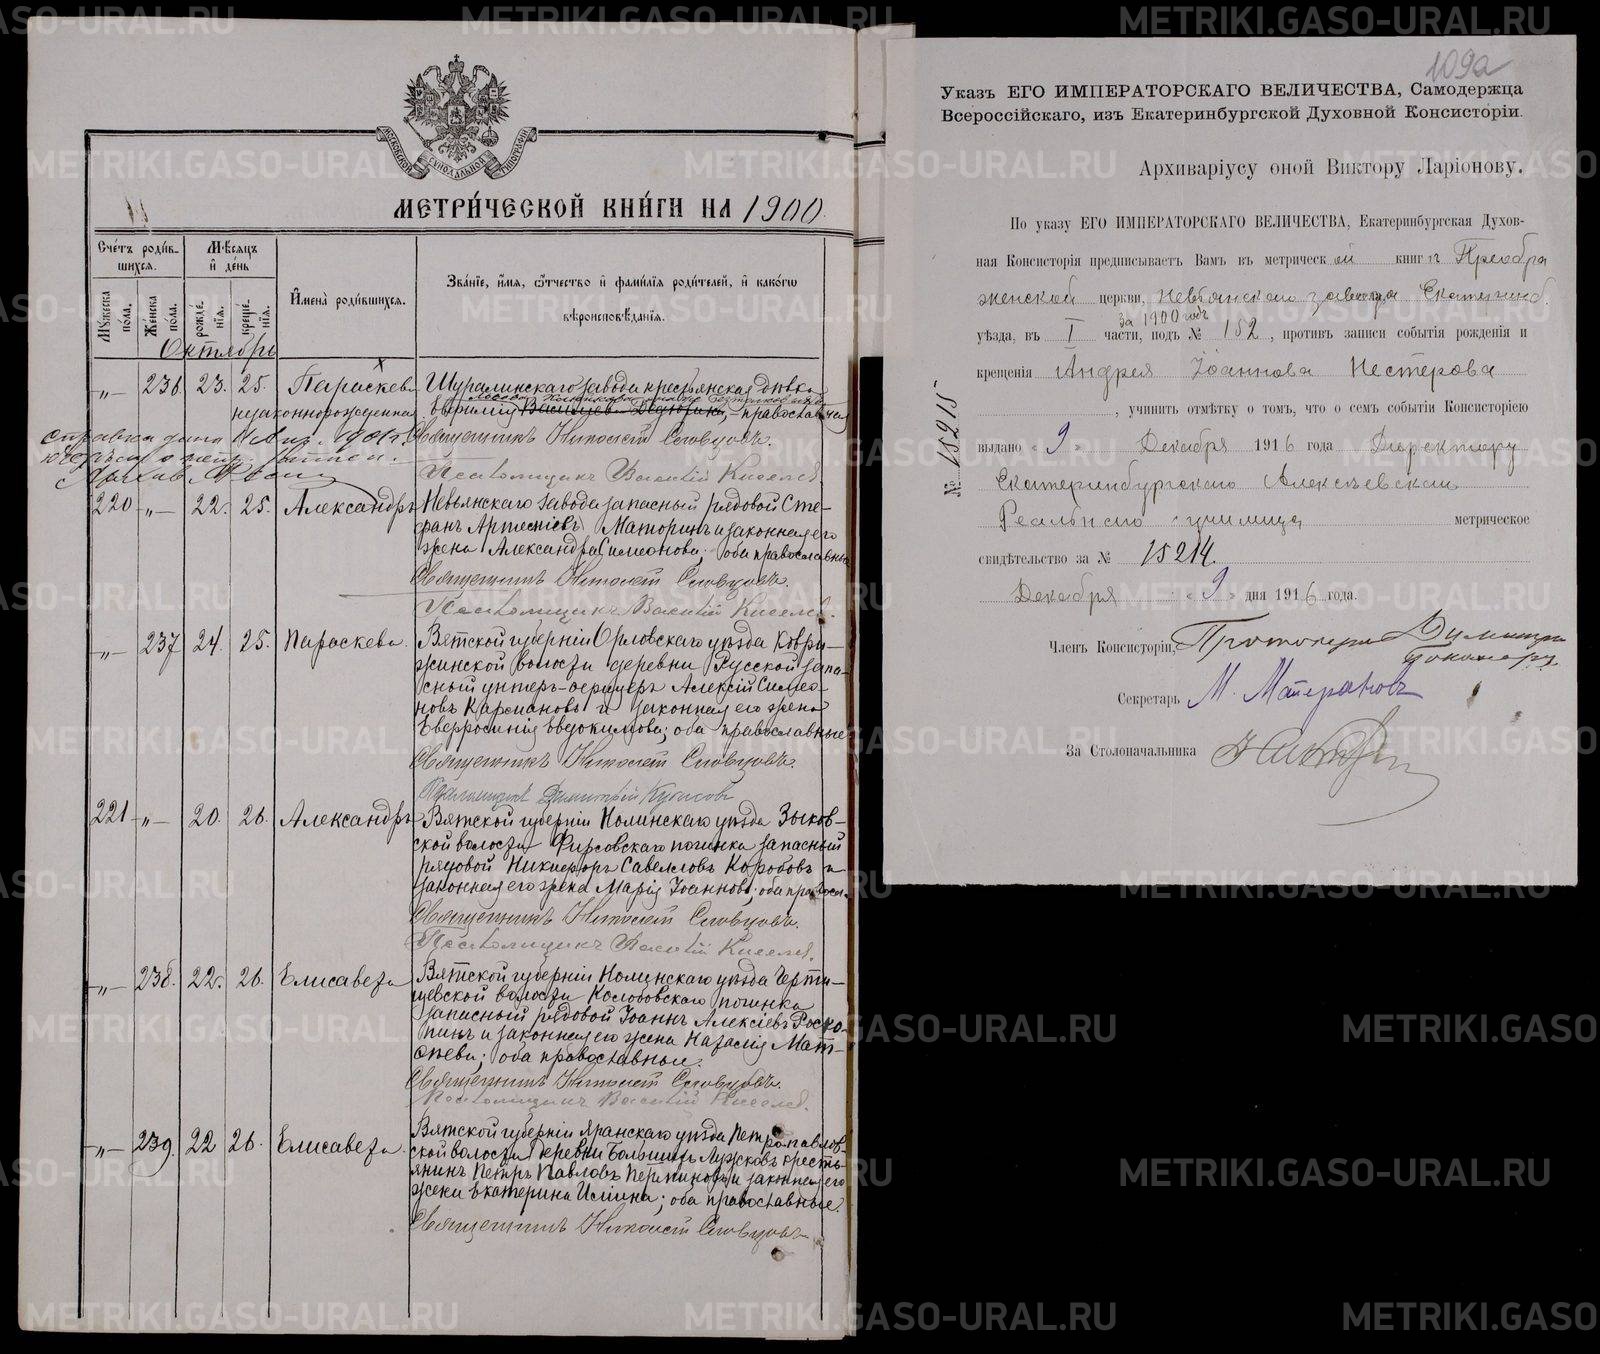 МЕТРИЧЕСКОЙ КНИГИ НА 1900.
Счетъ родившихся.
Мѣсяцъ и день
Имена родившихся.
Званіе, имя, отчество и фамилія родителей, и какого вѣроисповѣданія.
Мужеска пола.
Женска пола.
рожденія.
крещенія.
Октябрь
„ 236. 23. 25. Параскева
незаконнорожденная
Шуралинскаго завода крестьянская дѣвка
православная
Священникъ Николай Словцовъ.
Псаломщикъ Василій Киселев.
220 „ 22. 25. Александръ
Невьянскаго завода запасный рядовой Сте-
фанъ Артемiевъ Маторинъ и законная его
жена Александра Симеонова; оба православные
Священникъ Николай Словцовъ.
Псаломщикъ Василій Киселев.
„ 237 24. 25. Параскева.
Вятской губерніи Орловскаго уѣзда
волости деревни Русской запа-
сный унтеръ-офицеръ Алексій Симео-
новъ и законная его жена
Евфросинія Евдокимова; оба православные
Священникъ Николай Словцовъ.
Псаломщик Димитрій
221 „ 20. 26. Александръ
Вятской губерніи Нолинскаго уѣзда Зыков-
ской волости Фирсовскаго починка запасный
рядовой Никифоръ Савелловъ Коробовъ и
законная его жена Марія Іоаннова; оба правосл.
Священникъ Николай Словцовъ.
Псаломщикъ Василій Киселев.
„ 238. 22. 26. Елисавета
Вятской губерніи Нолинскаго уѣзда
волости починка
запасный рядовой Іоаннъ Алексіевъ
и законная его жена Наталія Мат-
ѳеева; оба православные.
Священникъ Николай Словцовъ.
Псаломщикъ Василій Киселев.
„ 239. 22 26. Елисавета.
Вятской губерніи Яранскаго уѣзда Петропавлов-
ской волости деревни крестья-
янинъ Петръ Павловъ и законная его
жена Екатерина; оба православные.
Священникъ Николай Словцовъ.
109а
Указъ ЕГО ИМПЕРАТОРСКАГО ВЕЛИЧЕСТВА, Самодержца
Всероссійскаго, изъ Екатеринбургской Духовной Консисторіи.
Архиваріусу оной Виктору Ларіонову.
По указу ЕГО ИМПЕРАТОРСКАГО ВЕЛИЧЕСТВА, Екатеринбургская Духов-
ная Консисторія предписываетъ Вамъ въ метрической книгѣ Преобра
женской церкви, Невьянскаго завода Екатеринб.
за 1900 годъ
уѣзда, въ I части, подъ № 152, противъ записи событія рожденія и
крещенія Андрея Іоаннова Нестерова
, учинить отмѣтку о томъ, что о семъ событіи Консисторіею
выдано «9» Декабря 1916 года Директору
Екатеринбургскаго Алексѣевскаго
Реальнаго училища метрическое
свидѣтельство за № 15214.
Декабря «9» дня 1916 года.
№ 15215
Членъ Консисторіи, Протоіерей Димитрій
Секретарь М. Матерановъ
За Столоначальника
METRIKI.GASO-URAL.RU